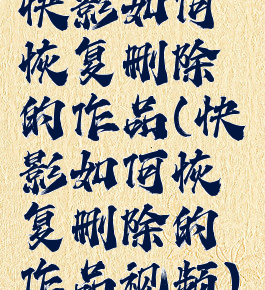 快影如何
恢复删除
的作品(快
影如何恢
复删除的
作品视频)